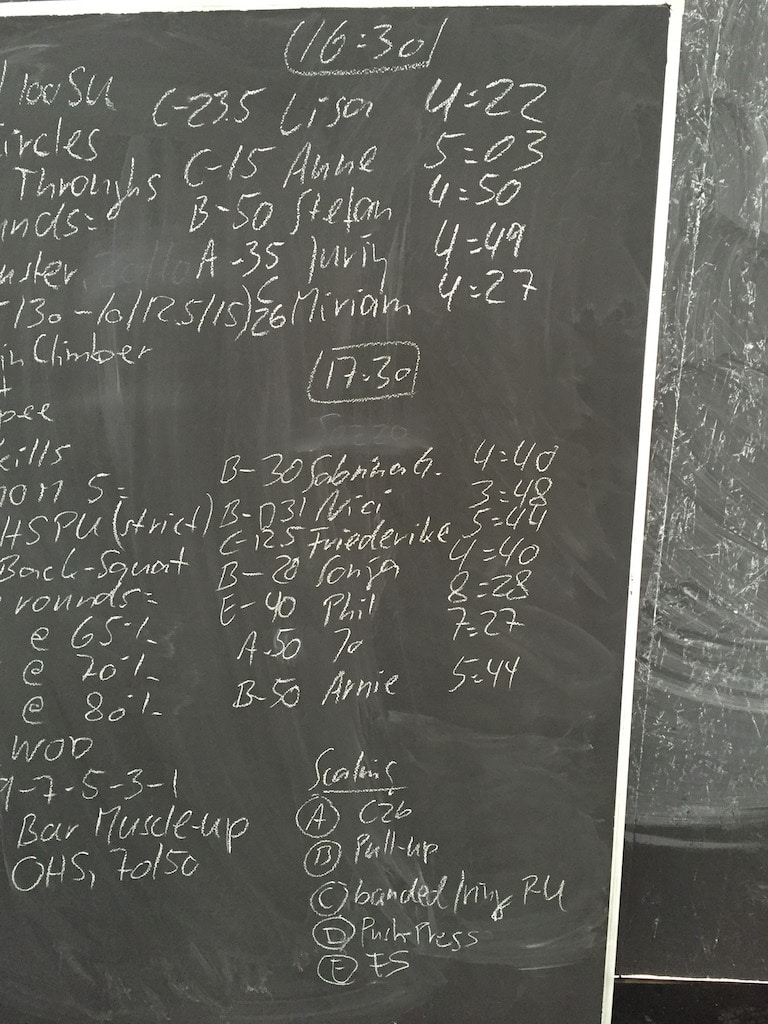 16:30
100 SU
C-23.5 Lisa 4:22
ircles
C-15 Anne 5:03
Throughs
B-50 Stefan 4:50
unds:
A-35 Jurij 4:49
uster
C 26 Miriam 4:27
/30-10/12.5/15)
in Climber
17:30
pee
kills
B-30 Sabrina 4:40
5:
B- Nici 3:48
HSPU (strict)
C-12.5 Friederike 5:44
Back-Squat
B-20 Sonja 4:40
rounds:
E-40 Phil 8:28
@ 65%
A-50 Jo 7:27
@ 70%
B-50 Arnie 5:44
@ 80%
WOD
-7-5-3-1
Bar Muscle-up
OHS, 70/50
Scaling
A C2B
B Pull-up
C banded/ring PU
D Push-Press
E FS